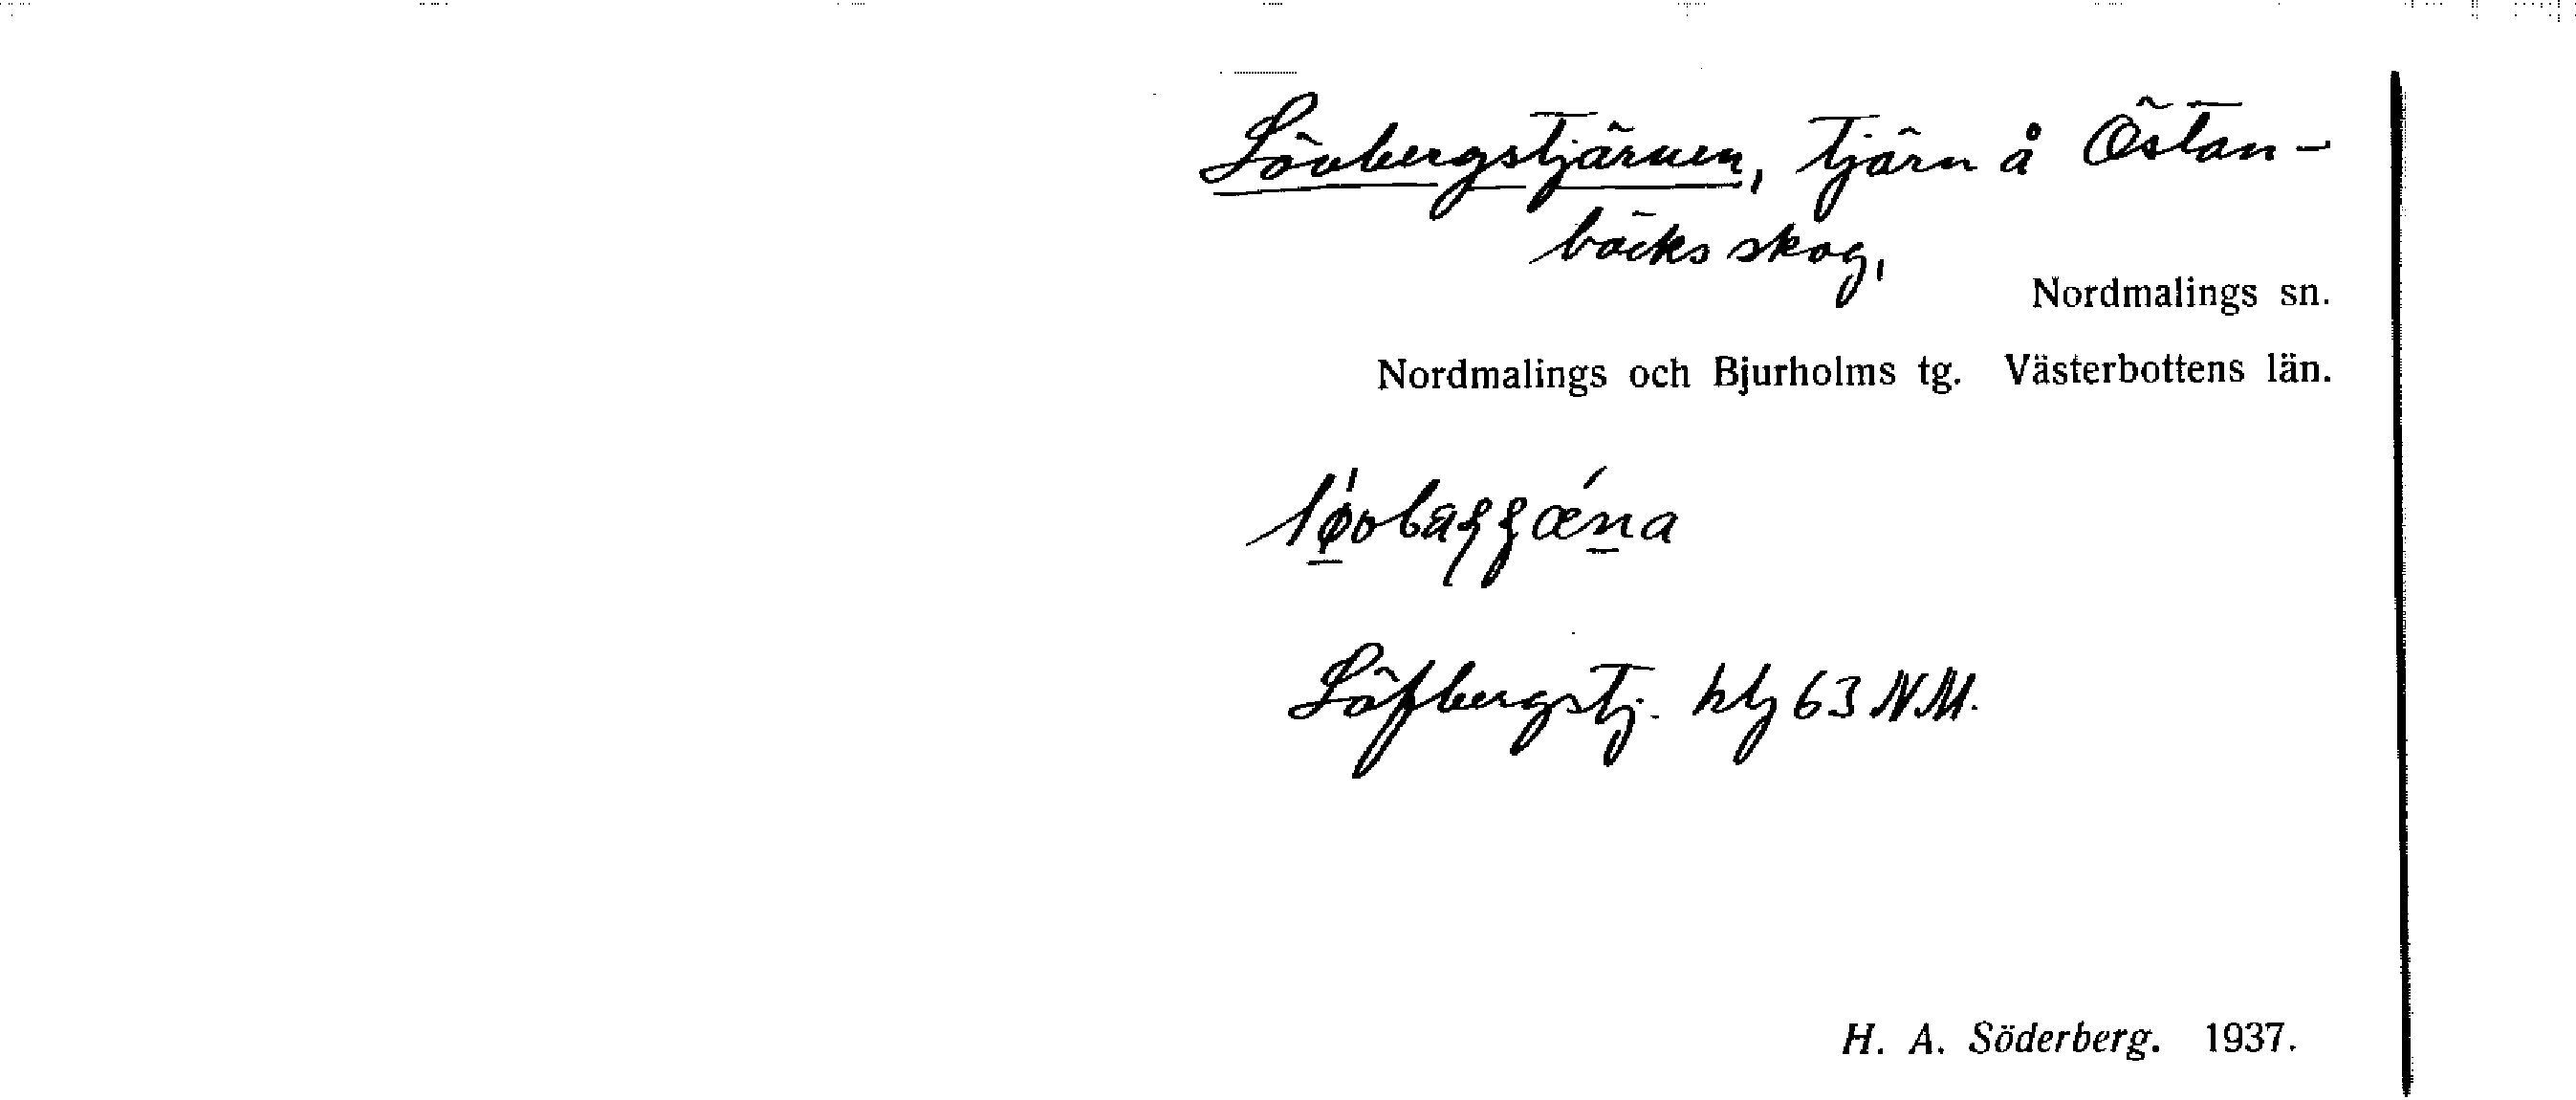 Lövbergstjärnen, tjärn å Östan-
bäcks skog,
Nordmalings sn.
Nordmalings och Bjurholms tg. Västerbottens län.
Löfbergstj. htj 63 NM.
H. A. Söderberg. 1937.